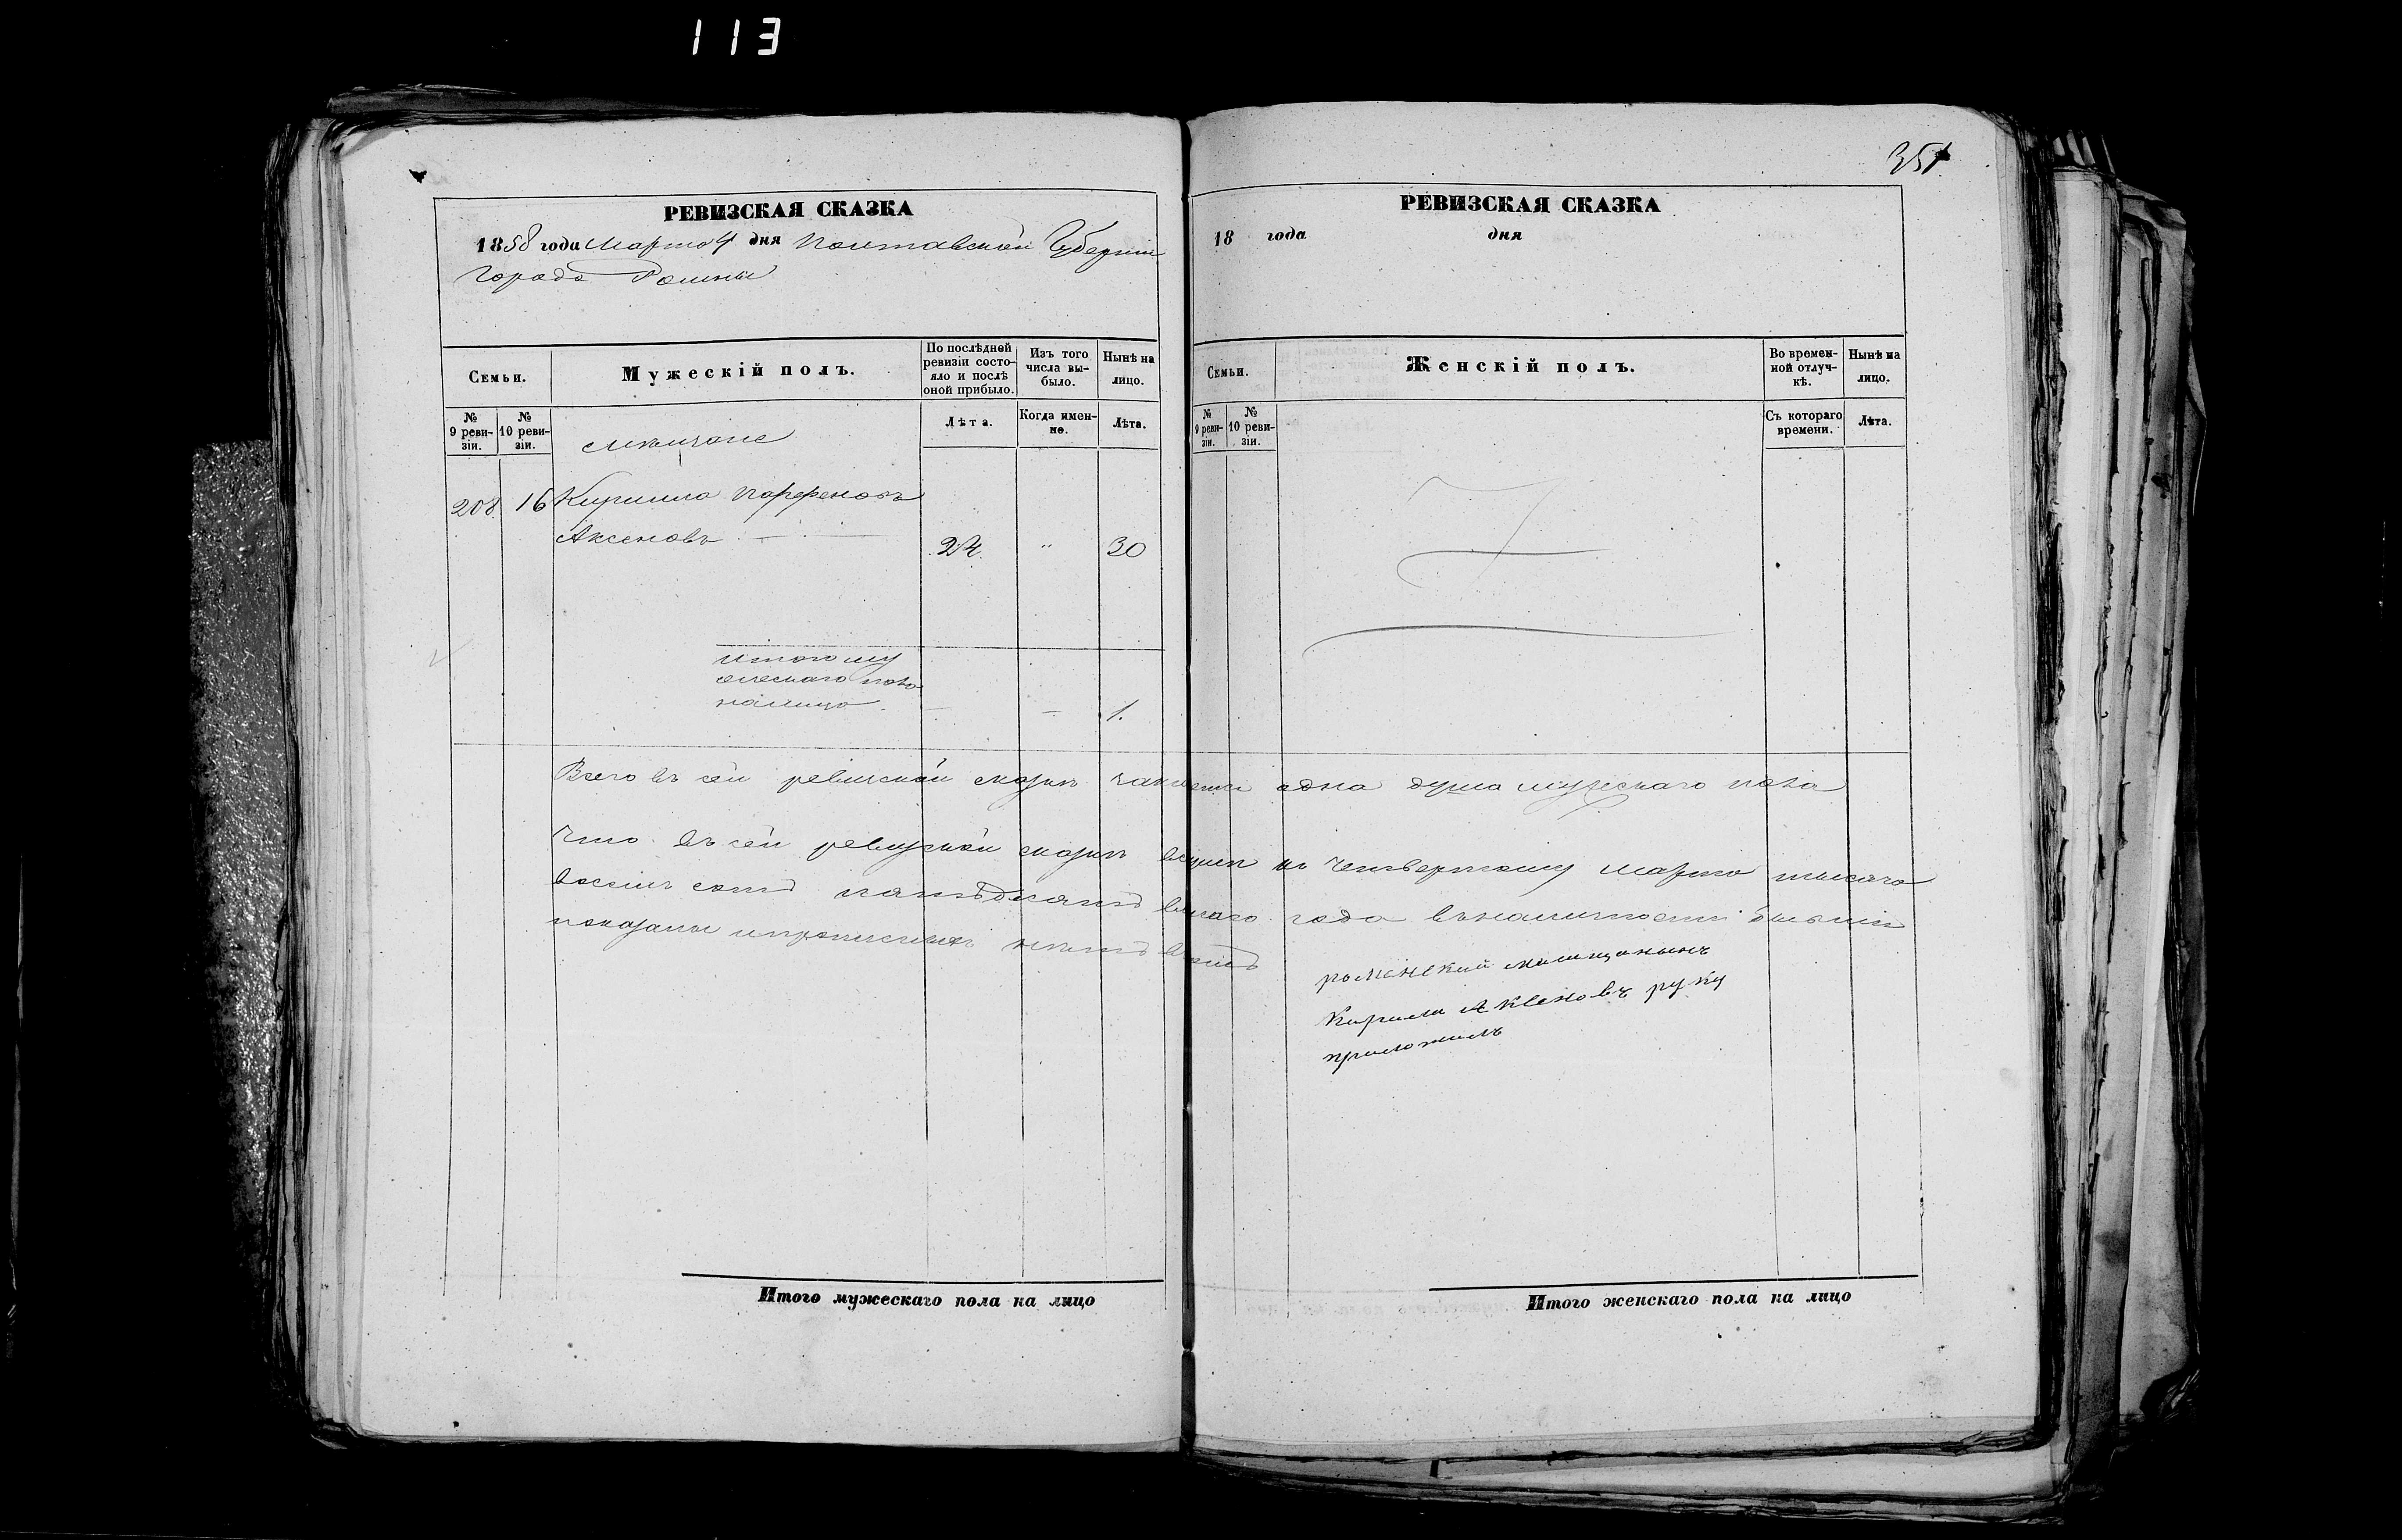 113
351
РЕВИЗСКАЯ СКАЗКА
1858 года Марта 4 дня Полтавской Губернии
Города Ромны
Семьи.
Мужескій полъ.
По послѣдней ревизіи состояло и послѣ оной прибыло.
Изъ того числа выбыло.
Нынѣ на лицо.
№ 9 ревизіи.
№ 10 ревизіи.
мѣщане
Лѣта.
Когда именно.
Лѣта.
208 16 Кирилло Парфеновъ
Аксеновъ 24 " 30
Итого му
жескаго пола
налицо 1.
РЕВИЗСКАЯ СКАЗКА
18 года дня
Семьи.
Женскій полъ.
Во временной отлучкѣ.
Нынѣ на лицо.
№ 9 ревизіи.
№ 10 ревизіи.
Съ котораго времени.
Лѣта.
Всего въ сей ревизской сказкѣ одна душа мужескаго пола
Что въ сей ревизской сказкѣ всѣ къ четвертому марта тысяча
восемь сотъ пятьдесятъ года въ наличности бывшіе
показаны и прописныхъ нѣтъ
роменский мещанинъ
Кирила Аксеновъ руку
приложилъ
Итого мужескаго пола на лицо
Итого женскаго пола на лицо